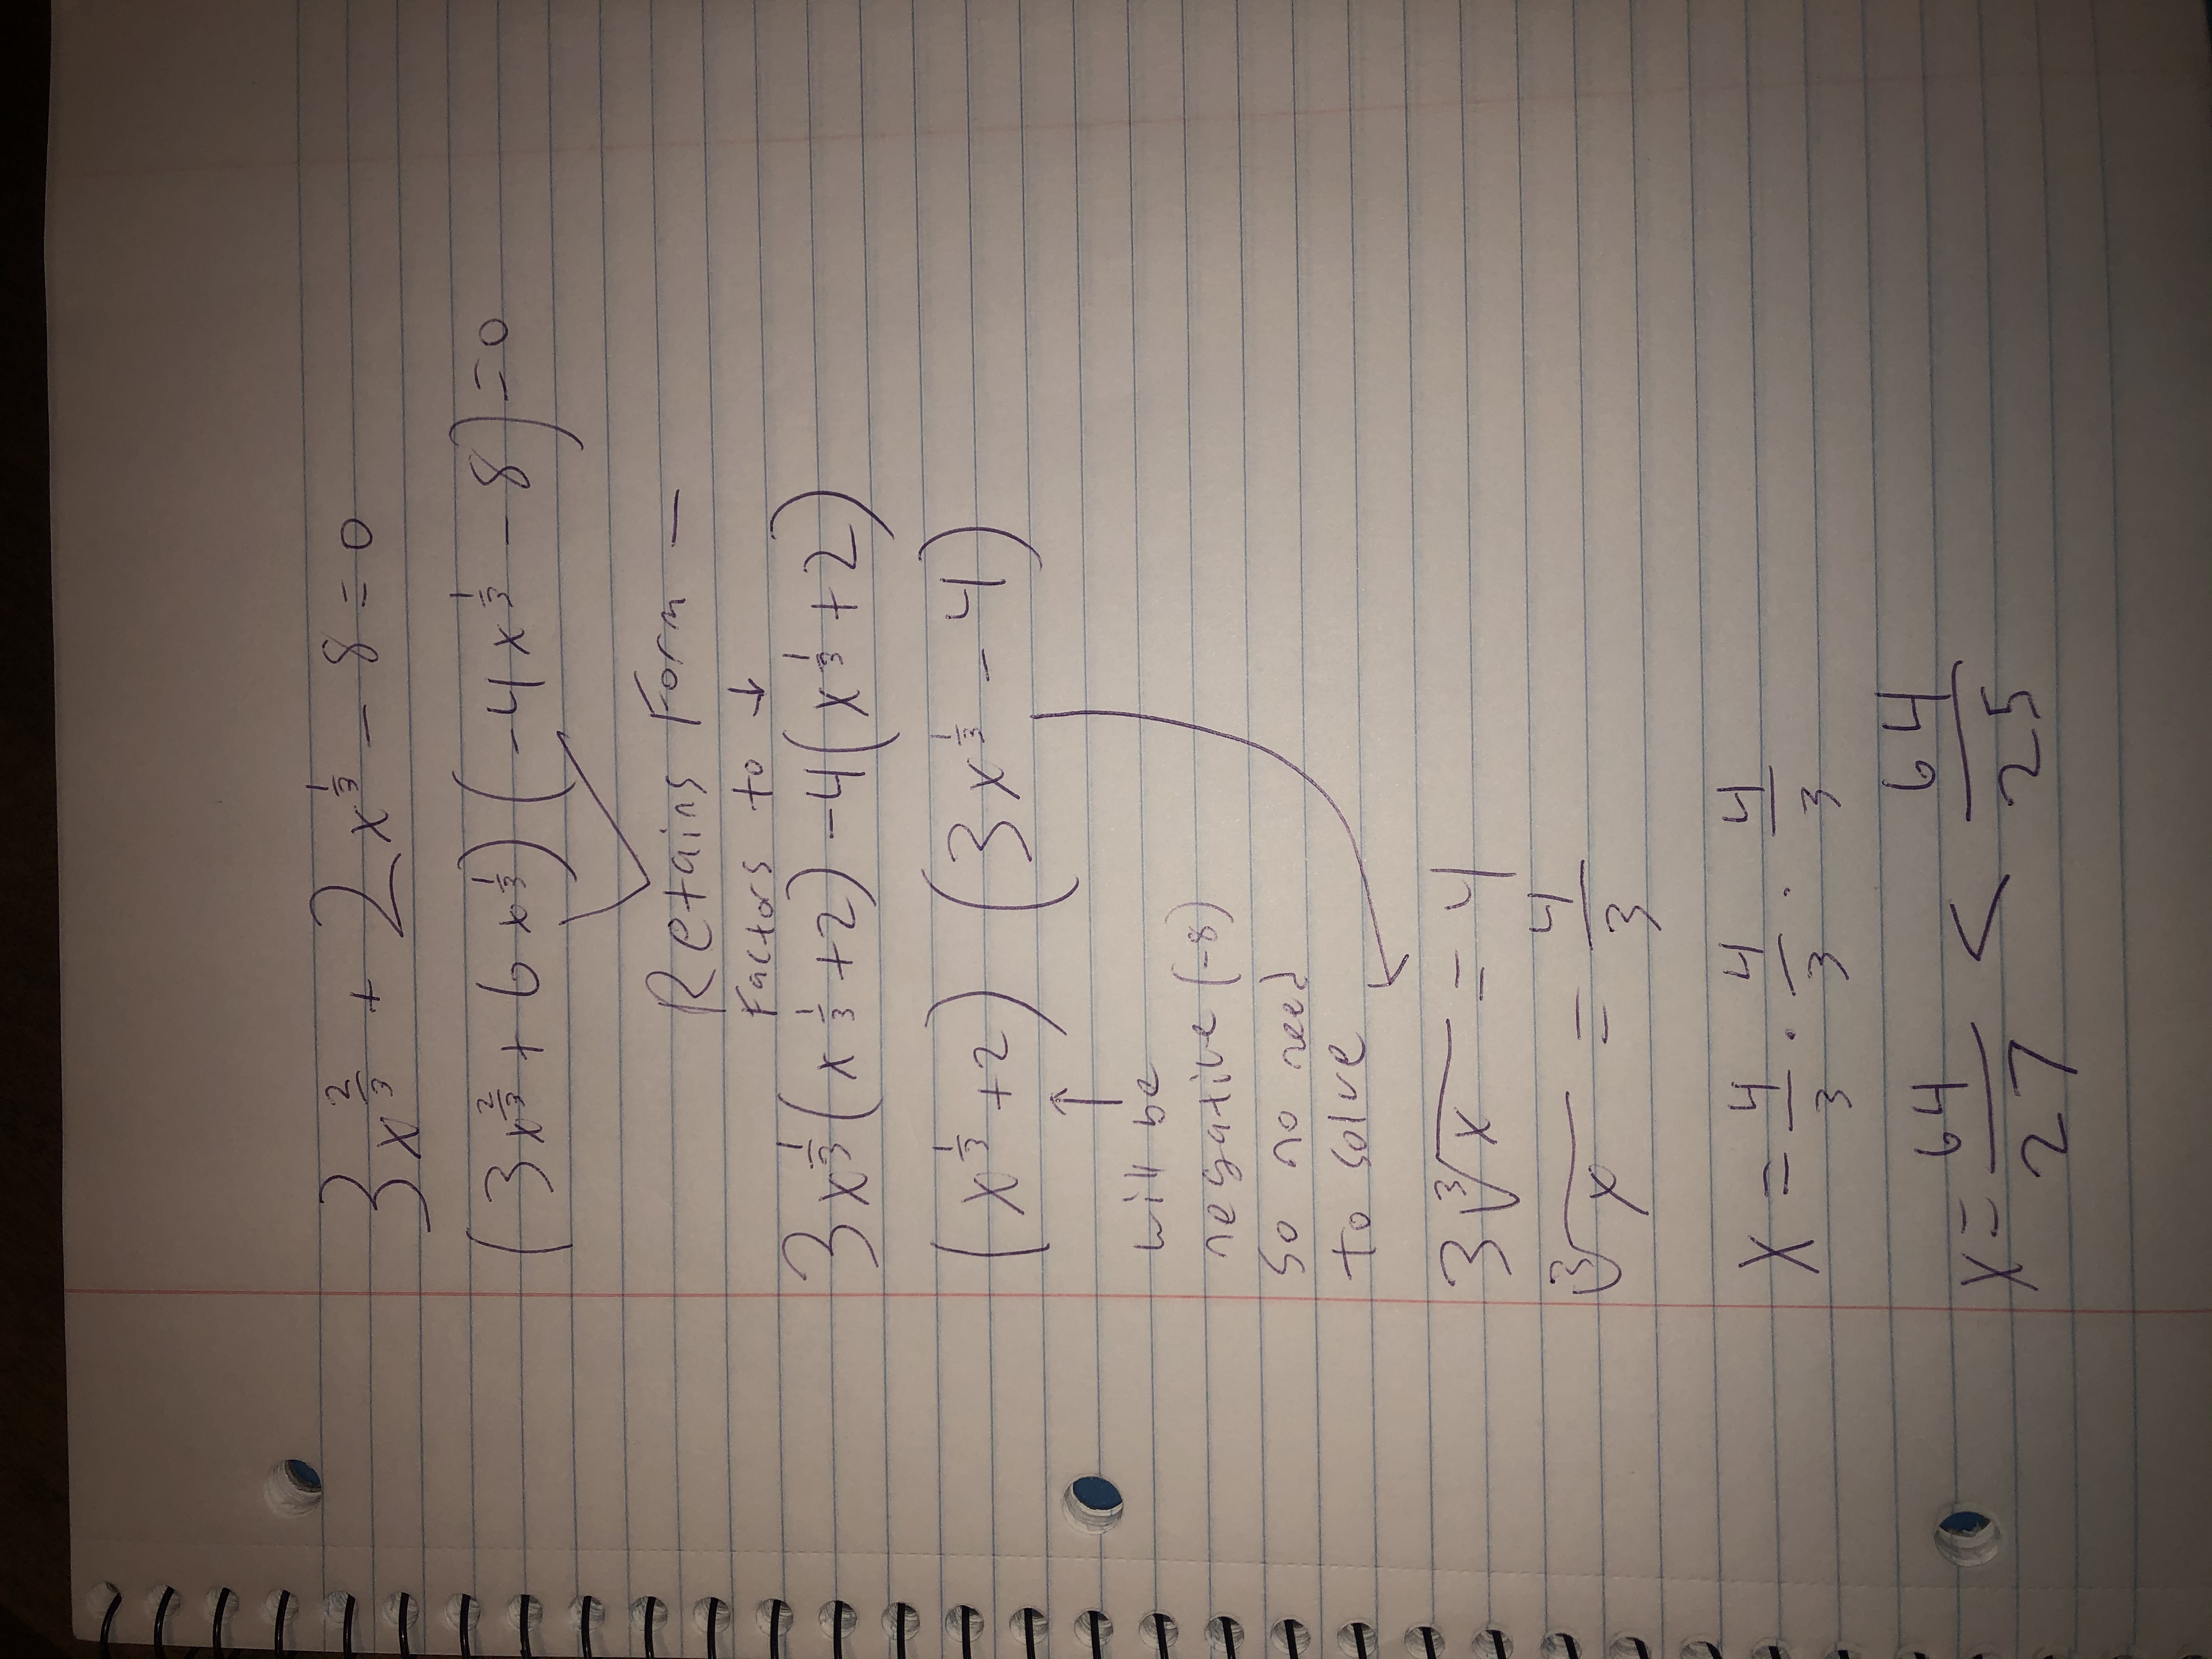 3x^(2/3) + 2x^(1/3) - 8 = 0
(3x^(2/3) + 6x^(1/3)) (-4x^(1/3) - 8) = 0
Retains Form -
Factors to ↓
3x^(1/3)(x^(1/3) + 2) - 4(x^(1/3) + 2)
(x^(1/3) + 2) (3x^(1/3) - 4)
↑
will be
negative (-8)
so no need
to solve
3∛x = 4
∛x = 4/3
x = 4/3 · 4/3 · 4/3
x = 64/27 < 64/25